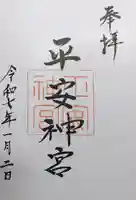 奉拝
平安神宮
令和七年一月二日